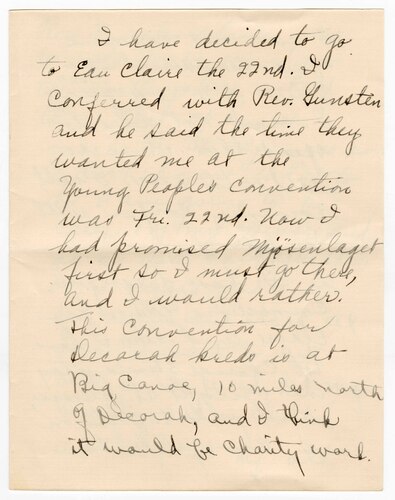 I have decided to go
to Eau Claire the 22nd. I
conferred with Rev. Gunsten
and he said the time they
wanted me at the
Young Peoples convention
was Fri. 22nd. Now I
had promised Mjösenlaget
first so I must go there,
and I would rather.
This convention for
Decorah kreds is at
Big Canoe, 10 miles north
of Decorah, and I think
it would be charity work.